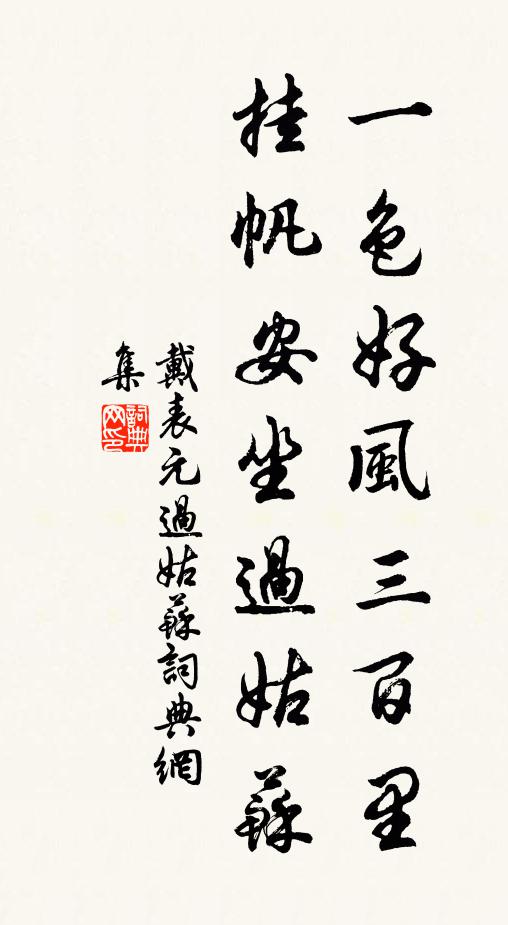 一色好風三百里
挂帆安坐過姑蘇
戴表元過姑蘇詞典網
集
詞典
网印